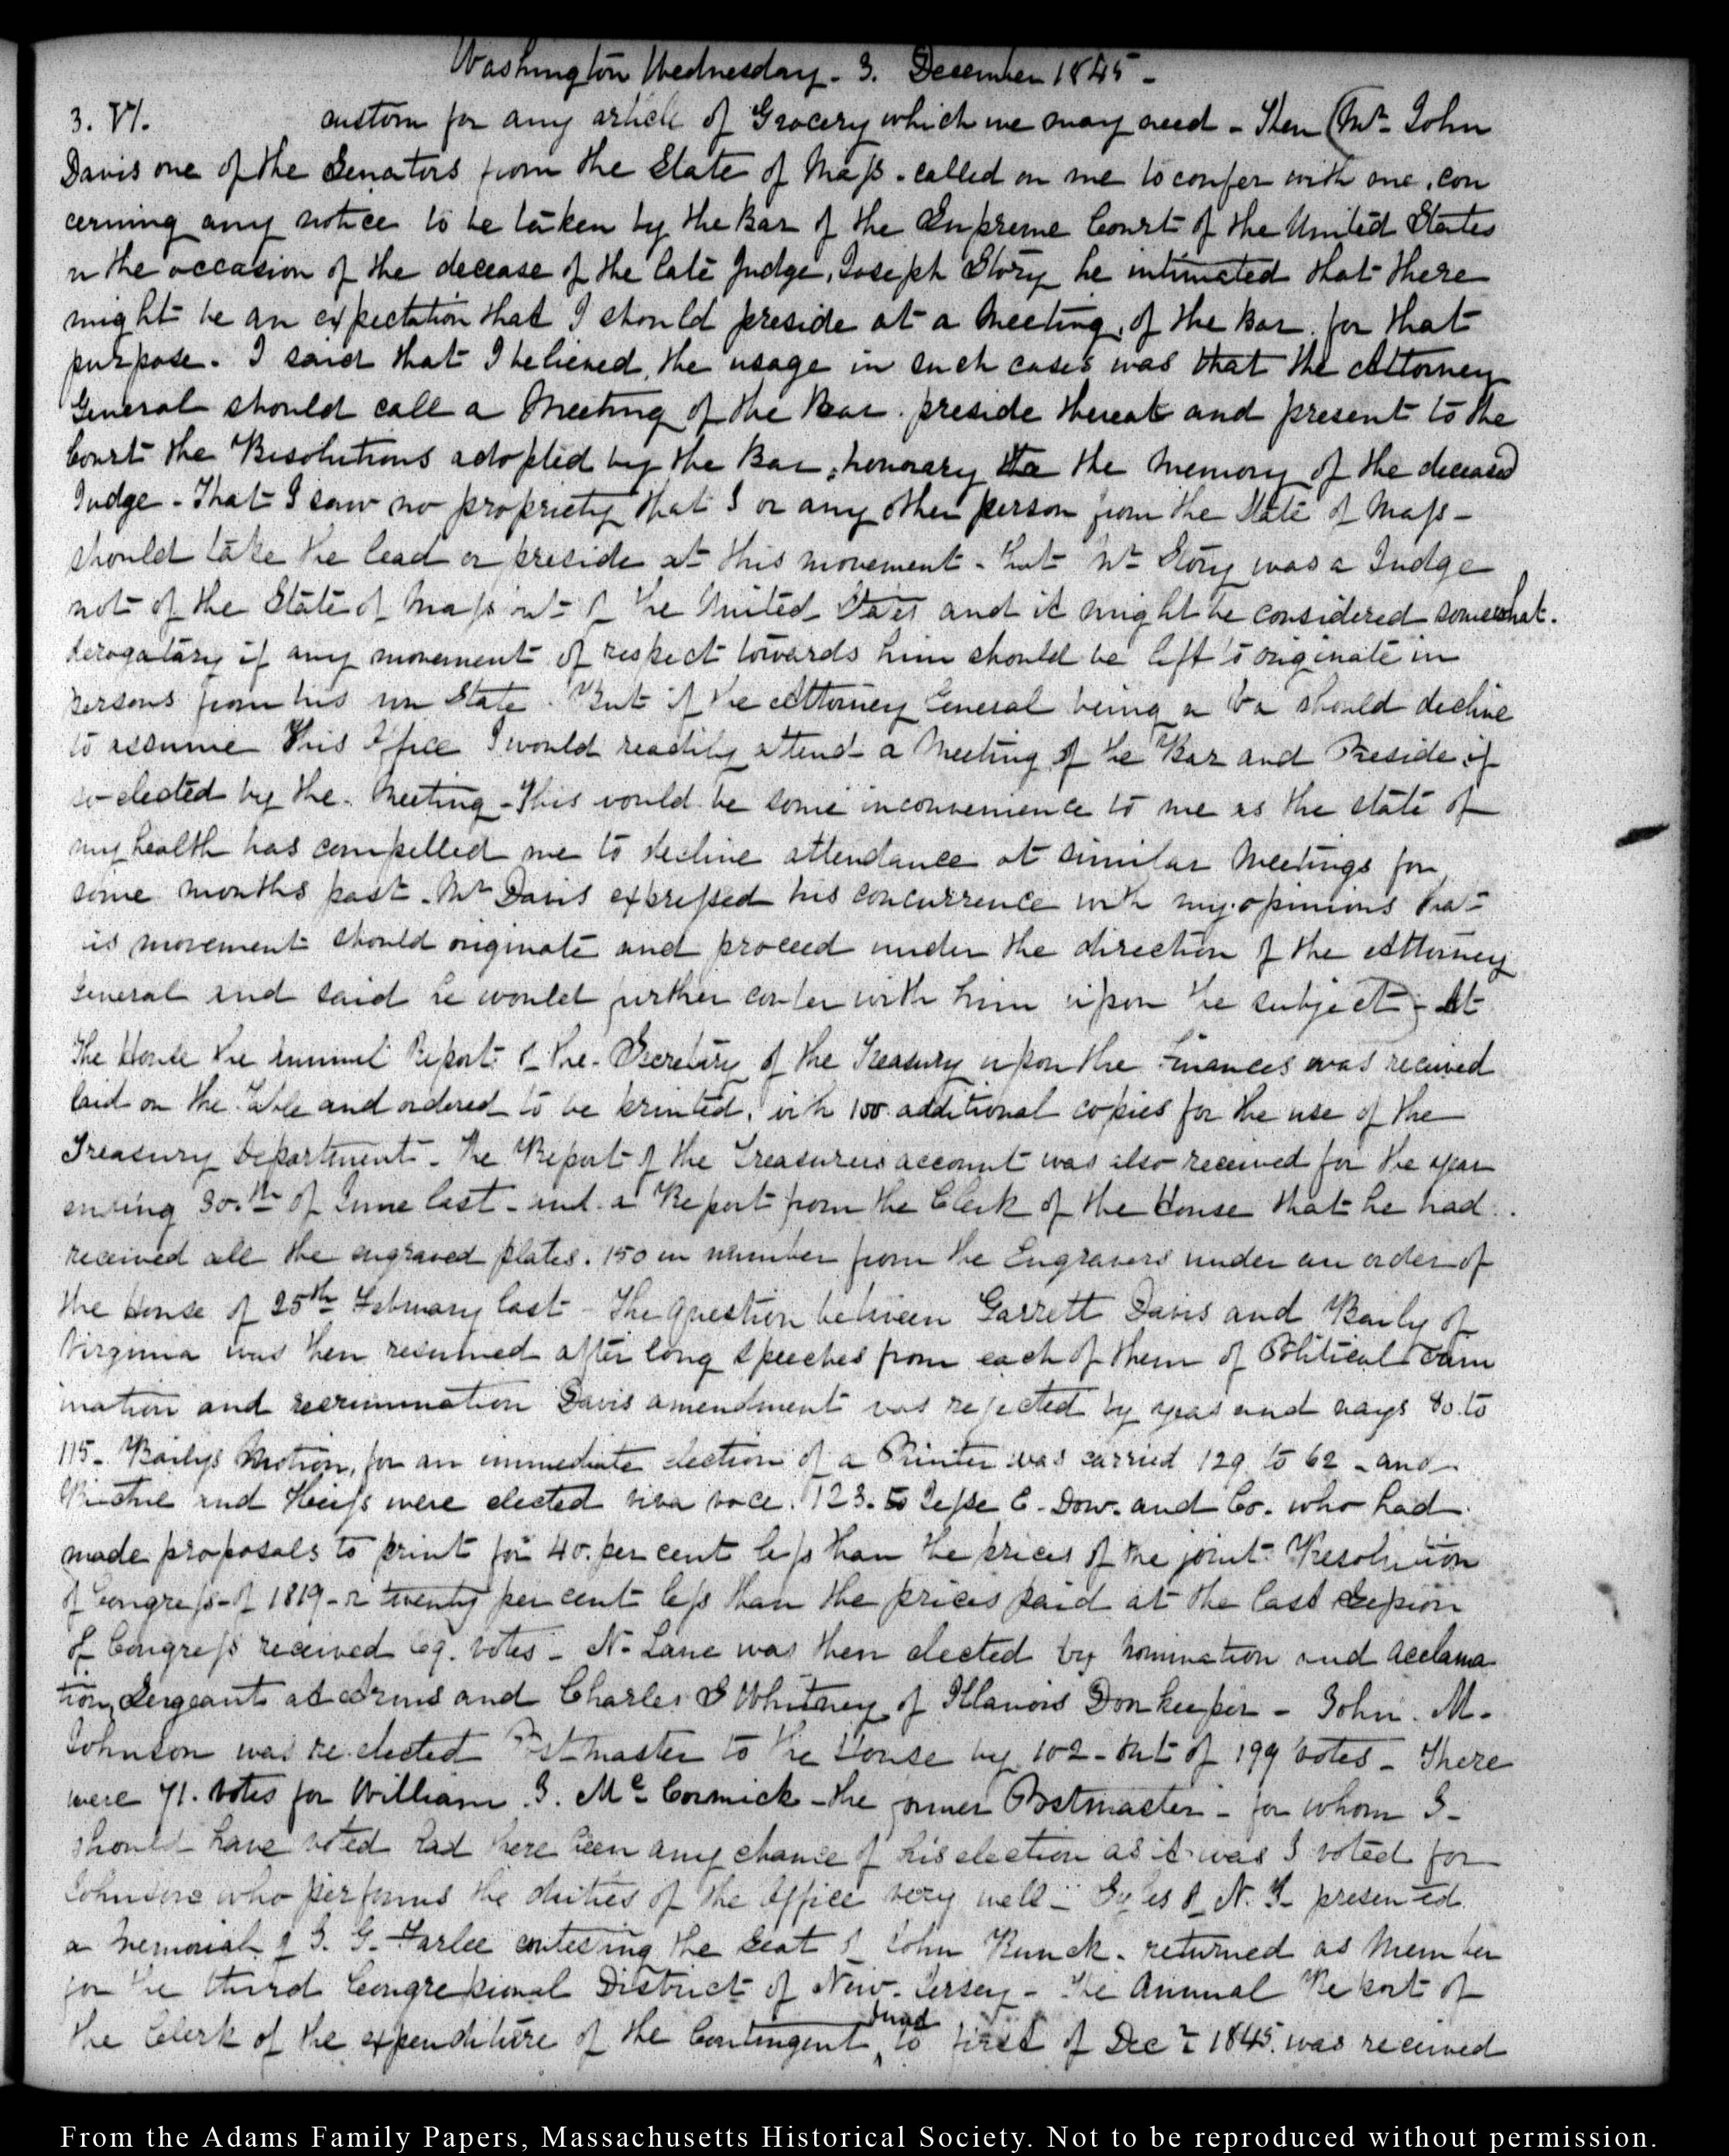 Washington Wednesday - 3. December 1845 -
3. VI. custom for any article of Grocery which we may need - Then (Mr. John
Davis one of the Senators from the State of Mass - called on me to confer with me, con
cerning any notice to be taken by the Bar of the Supreme Court of the United States
n the occasion of the decease of the late Judge, Joseph Story he intimated that there
might be an expectation that I should preside at a meeting, of the Bar for that
purpose. I said that I believed, the usage in such cases was that the Attorney
General should call a Meeting of the Bar preside thereat and present to the
Court the Resolutions adopted by the Bar, honorary to the memory of the deceased
Judge - That I saw no propriety that I or any other person from the State of Mass -
should take the lead or preside at this movement - that Mr Story was a Judge
not of the State of Mass but of the United States and it might be considered somewhat.
derogatory if any movement of respect towards him should be left to originate in
persons from his own State. But if the Attorney General being a should decline
to assume this Office I would readily attend a Meeting of the Bar and Preside if
so elected by the Meeting - This would be some inconvenience to me as the state of
my health has compelled me to decline attendance at similar meetings for
some months past. Mr Davis expressed his concurrence with my opinions that
is movement should originate and proceed under the direction of the Attorney
General and said he would further confer with him upon the subject - At
the House the Annual Report of the Secretary of the Treasury upon the Finances was received
laid on the Table and ordered to be printed, with 100 additional copies for the use of the
Treasury Department - The Report of the Treasurers account was also received for the year
ending 30.th of June last - and a Report from the Clerk of the House that he had
received all the engraved plates. 150 in number from the Engravers under an order of
the House of 25th February last - The question between Garrett Davis and Baily of
Virginia was then resumed after long speeches from each of them of Political crim
ination and recrimination Davis amendment was rejected by yeas and nays 80 to
115 - Bailys Motion, for an immediate election of a Printer was carried 129 to 62 - and
Ritchie and Heiss were elected viva voce. 123. to Jesse E. Dow. and Co. who had
made proposals to print for 40. per cent less than the prices of the joint Resolution
of Congress - of 1819 - or twenty per cent less than the prices paid at the last Session
of Congress received 69. votes - N- Lane was then elected by nomination and acclama
tion, Sergeant at Arms and Charles S Whitney of Illanois Doorkeeper - John. M.
Johnson was re elected Postmaster to the House by 102 - out of 199 votes - There
were 71. votes for William. J. Mc Cormick - the former Postmaster - for whom I
should have voted had there been any chance of his election as it was I voted for
Johnson who performs the duties of the Office very well - of N. J- presented
a memorial of I. G. Farlee contesting the seat of John Runck - returned as Member
for the third Congressional District of New-Jersey - The Annual Report of
the Clerk of the expenditure of the Contingent fund to first of Decr 1845. was received
From the Adams Family Papers, Massachusetts Historical Society. Not to be reproduced without permission.